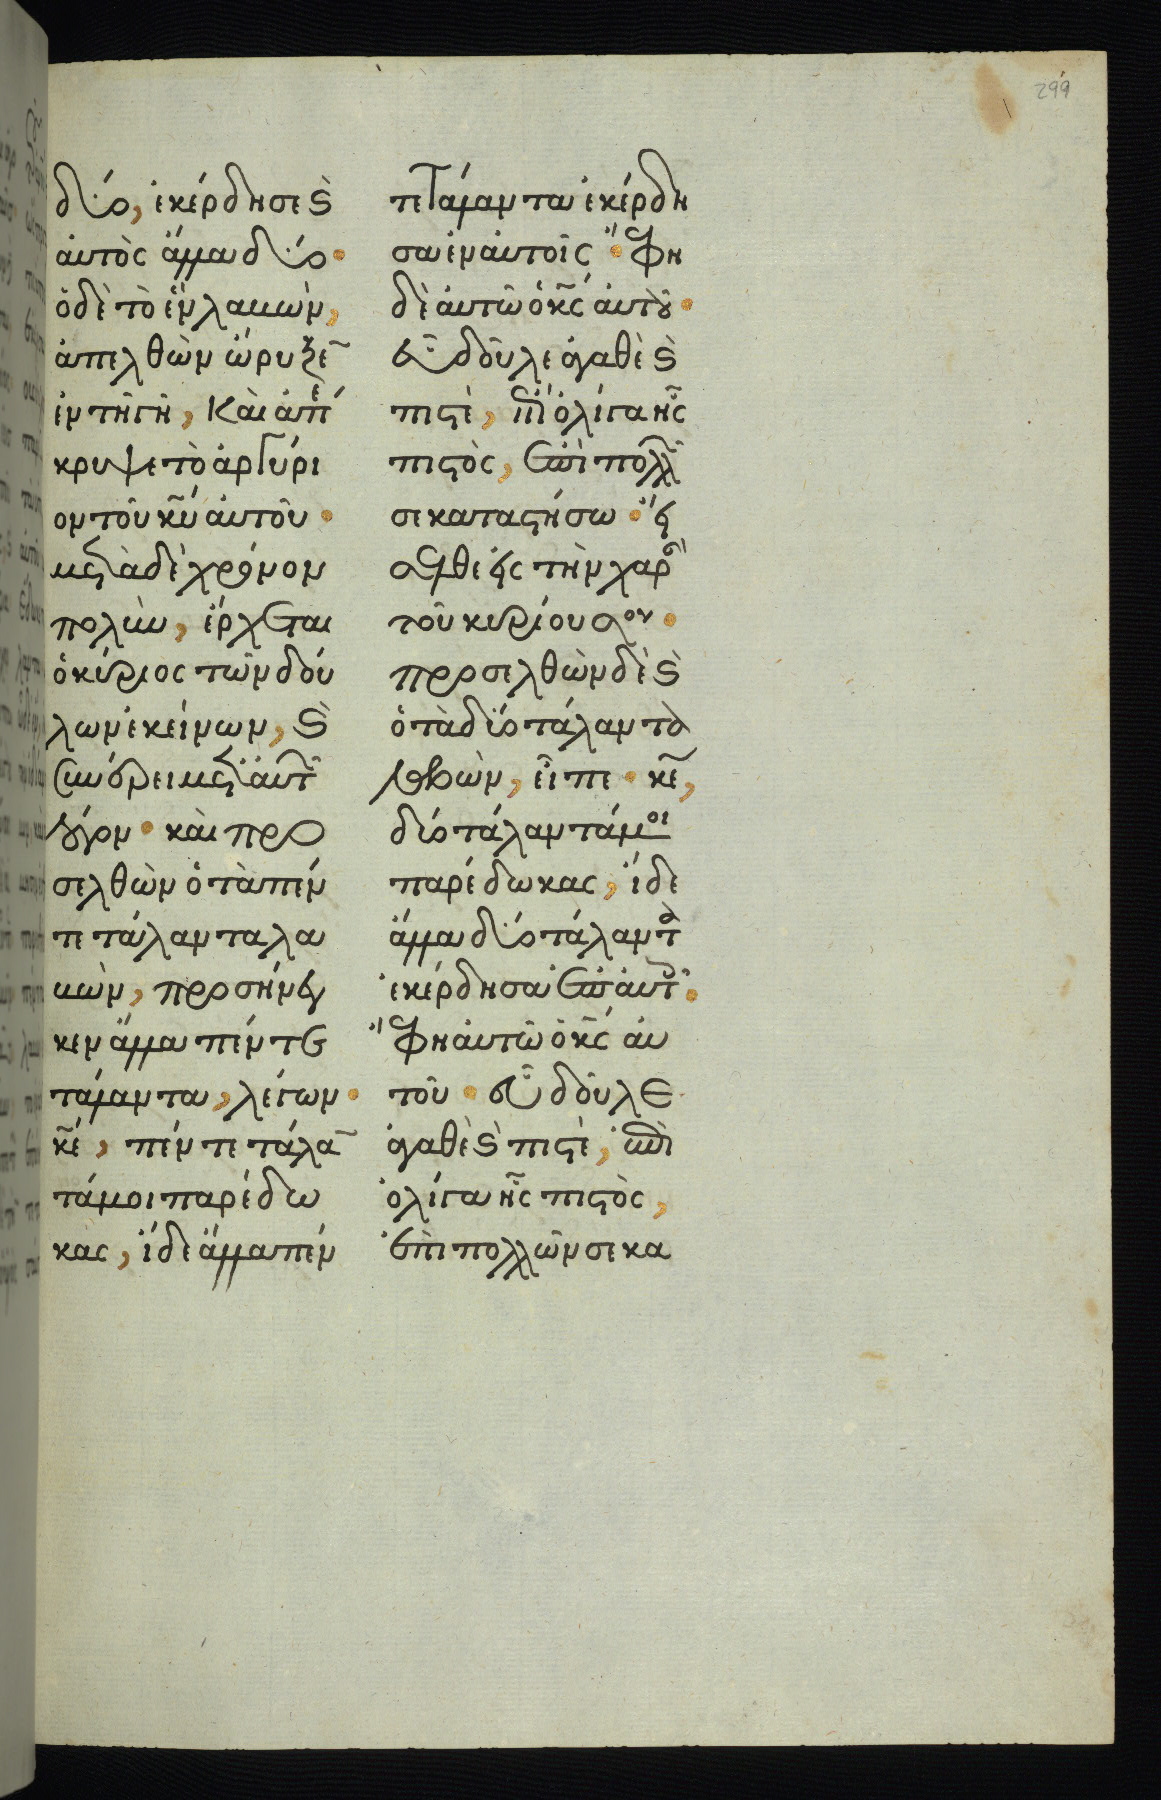 299
δύο, ἐκέρδησε ϗ̀
ἀυτὸς ἄλλα δύο·
ὁ δὲ τὸ ἓν λαβὼν,
ἀπελθὼν ὤρυξε̄
ἐν τῆ γῆ, Καὶ ἀπέ
κρυψε τὸ ἀργύρι
ον τοῦ κυ̅ ἀυτοῦ·
μετὰ δὲ χρόνον
πολὺν, ἔρχεται
ὁ κύριος τῶν δού
λων ἐκείνων, ϗ̀
συναίρει μετ' ἀυτ̑
λόγον· καὶ προ
σελθὼν ὁ τὰ πέν
τε τάλαντα λα
βὼν, προσήνεγ
κεν ἄλλα πέντε
τάλαντα, λέγων·
κε̅, πέντε τάλα̅
τά μοι παρέδω
κας, ἴδε ἄλλα πέν
τε τάλαντα ἐκέρδη
σα ἐν ἀυτοῖς· Ἔφη
δὲ ἀυτῶ ὁ κς̅ ἀυτοῦ·
εὖ δοῦλε ἀγαθὲ ϗ̀
πιστὲ, ἐπὶ ὀλίγα ἦς
πιστὸς, ἐπὶ πολλῶ̑
σε καταστήσω· εἴς
ελθε εἰς τὴν χαρὰ̅
τοῦ κυρίου σου·
προσελθὼν δὲ ϗ̀
ὁ τὰ δύο τάλαντα
λαβὼν, εἶπε· κε̅,
δύο τάλαντά μοι
παρέδωκας, ἴδε
ἄλλα δύο τάλαντα
ἐκέρδησα ἐπ' ἀυτ̑·
Ἔφη ἀυτῶ ὁ κς̅ ἀυ
τοῦ· εὖ δοῦλε
ἀγαθὲ ϗ̀ πιστὲ, ἐπὶ
ὀλίγα ἦς πιστὸς,
ἐπὶ πολλῶν σε κα